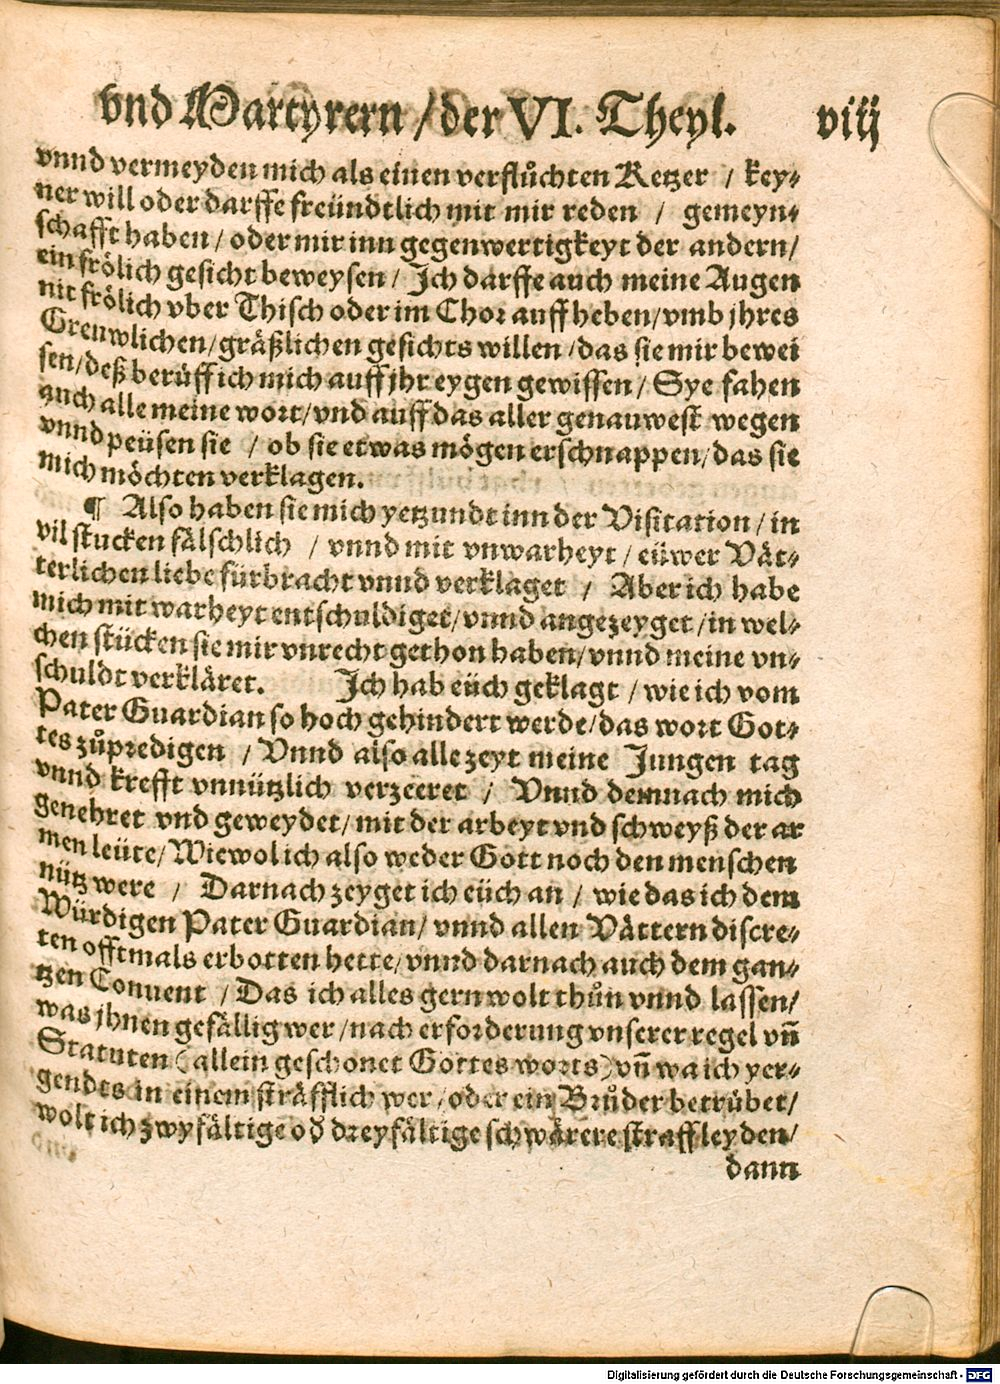 vnd Martyrern / der VI. Theyl. viij
vnnd vermeyden mich als einen verflůchten Ketzer / key⸗
ner will oder darffe freündtlich mit mir reden / gemeyn⸗
schafft haben / oder mir inn gegenwertigkeyt der andern /
ein frölich gesicht beweysen / Ich darffe auch meine Augen
nit frölich vber Thisch oder im Chor auffheben / vmb jhres
Greuwlichen / gräßlichen gesichts willen / das sie mir bewei
sen / deß berüff ich mich auff jhr eygen gewissen / Sye fahen
auch alle meine wort / vnd auff das aller genauwest wegen
vnnd peüsen sie / ob sie etwas mögen erschnappen / das sie
mich möchten verklagen.
¶ Also haben sie mich yetzundt inn der Visitation / in
vil stucken fälschlich / vnnd mit vnwarheyt / eüwer Vät⸗
terlichen liebe fürbracht vnnd verklaget / Aber ich habe
mich mit warheyt entschuldiget / vnnd angezeyget / in wel⸗
chen stücken sie mir vnrecht gethon haben / vnnd meine vn⸗
schuldt verkläret. Ich hab eüch geklagt / wie ich vom
Pater Guardian so hoch gehindert werde / das wort Got⸗
tes zůpredigen / Vnnd also alle zeyt meine Jungen tag
vnnd krefft vnnützlich verzeeret / Vnnd demnach mich
genehret vnd geweydet / mit der arbeyt vnd schweyß der ar
men leüte / Wiewol ich also weder Gott noch den menschen
nütz were / Darnach zeyget ich eüch an / wie das ich dem
Würdigen Pater Guardian / vnnd allen Vättern discre⸗
ten offtmals erbotten hette / vnnd darnach auch dem gan⸗
tzen Conuent / Das ich alles gern wolt thůn vnnd lassen /
was jhnen gefällig wer / nach erforderung vnserer regel vñ
Statuten (allein geschonet Gottes worts) vñ wa ich yer⸗
gendts in einem sträfflich wer / oder ein Brůder betrübet /
wolt ich zwyfältige oď dreyfältige schwärere straff leyden /
dann
Digitalisierung gefördert durch die Deutsche Forschungsgemeinschaft - DFG